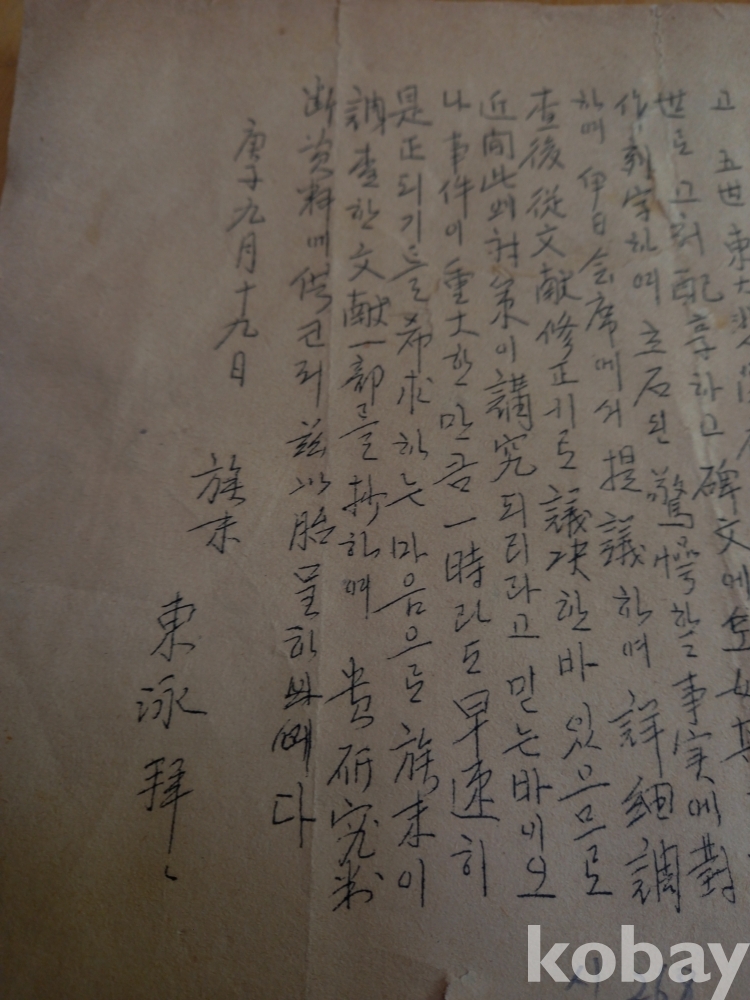 고 五世 東
世로 고려 配享하고 碑文에도
作 刻字하여 立石된 驚愕할 事実에 對
하여 伊日会席에서 提議하여 詳細調
査後 從文献修正키로 議决한바 있으므로
近間此에 対策이 講究되리라고 믿는바이오
나 事件이 重大한만큼 一時라도 早速히
是正되기를 希求하는마음으로 族末이
調査한 文献一部를 抄하여 貴研究判
断資料에 供코저 玆以 胎呈하 다
庚子九月十九日
族末
東泳 拜
kobay